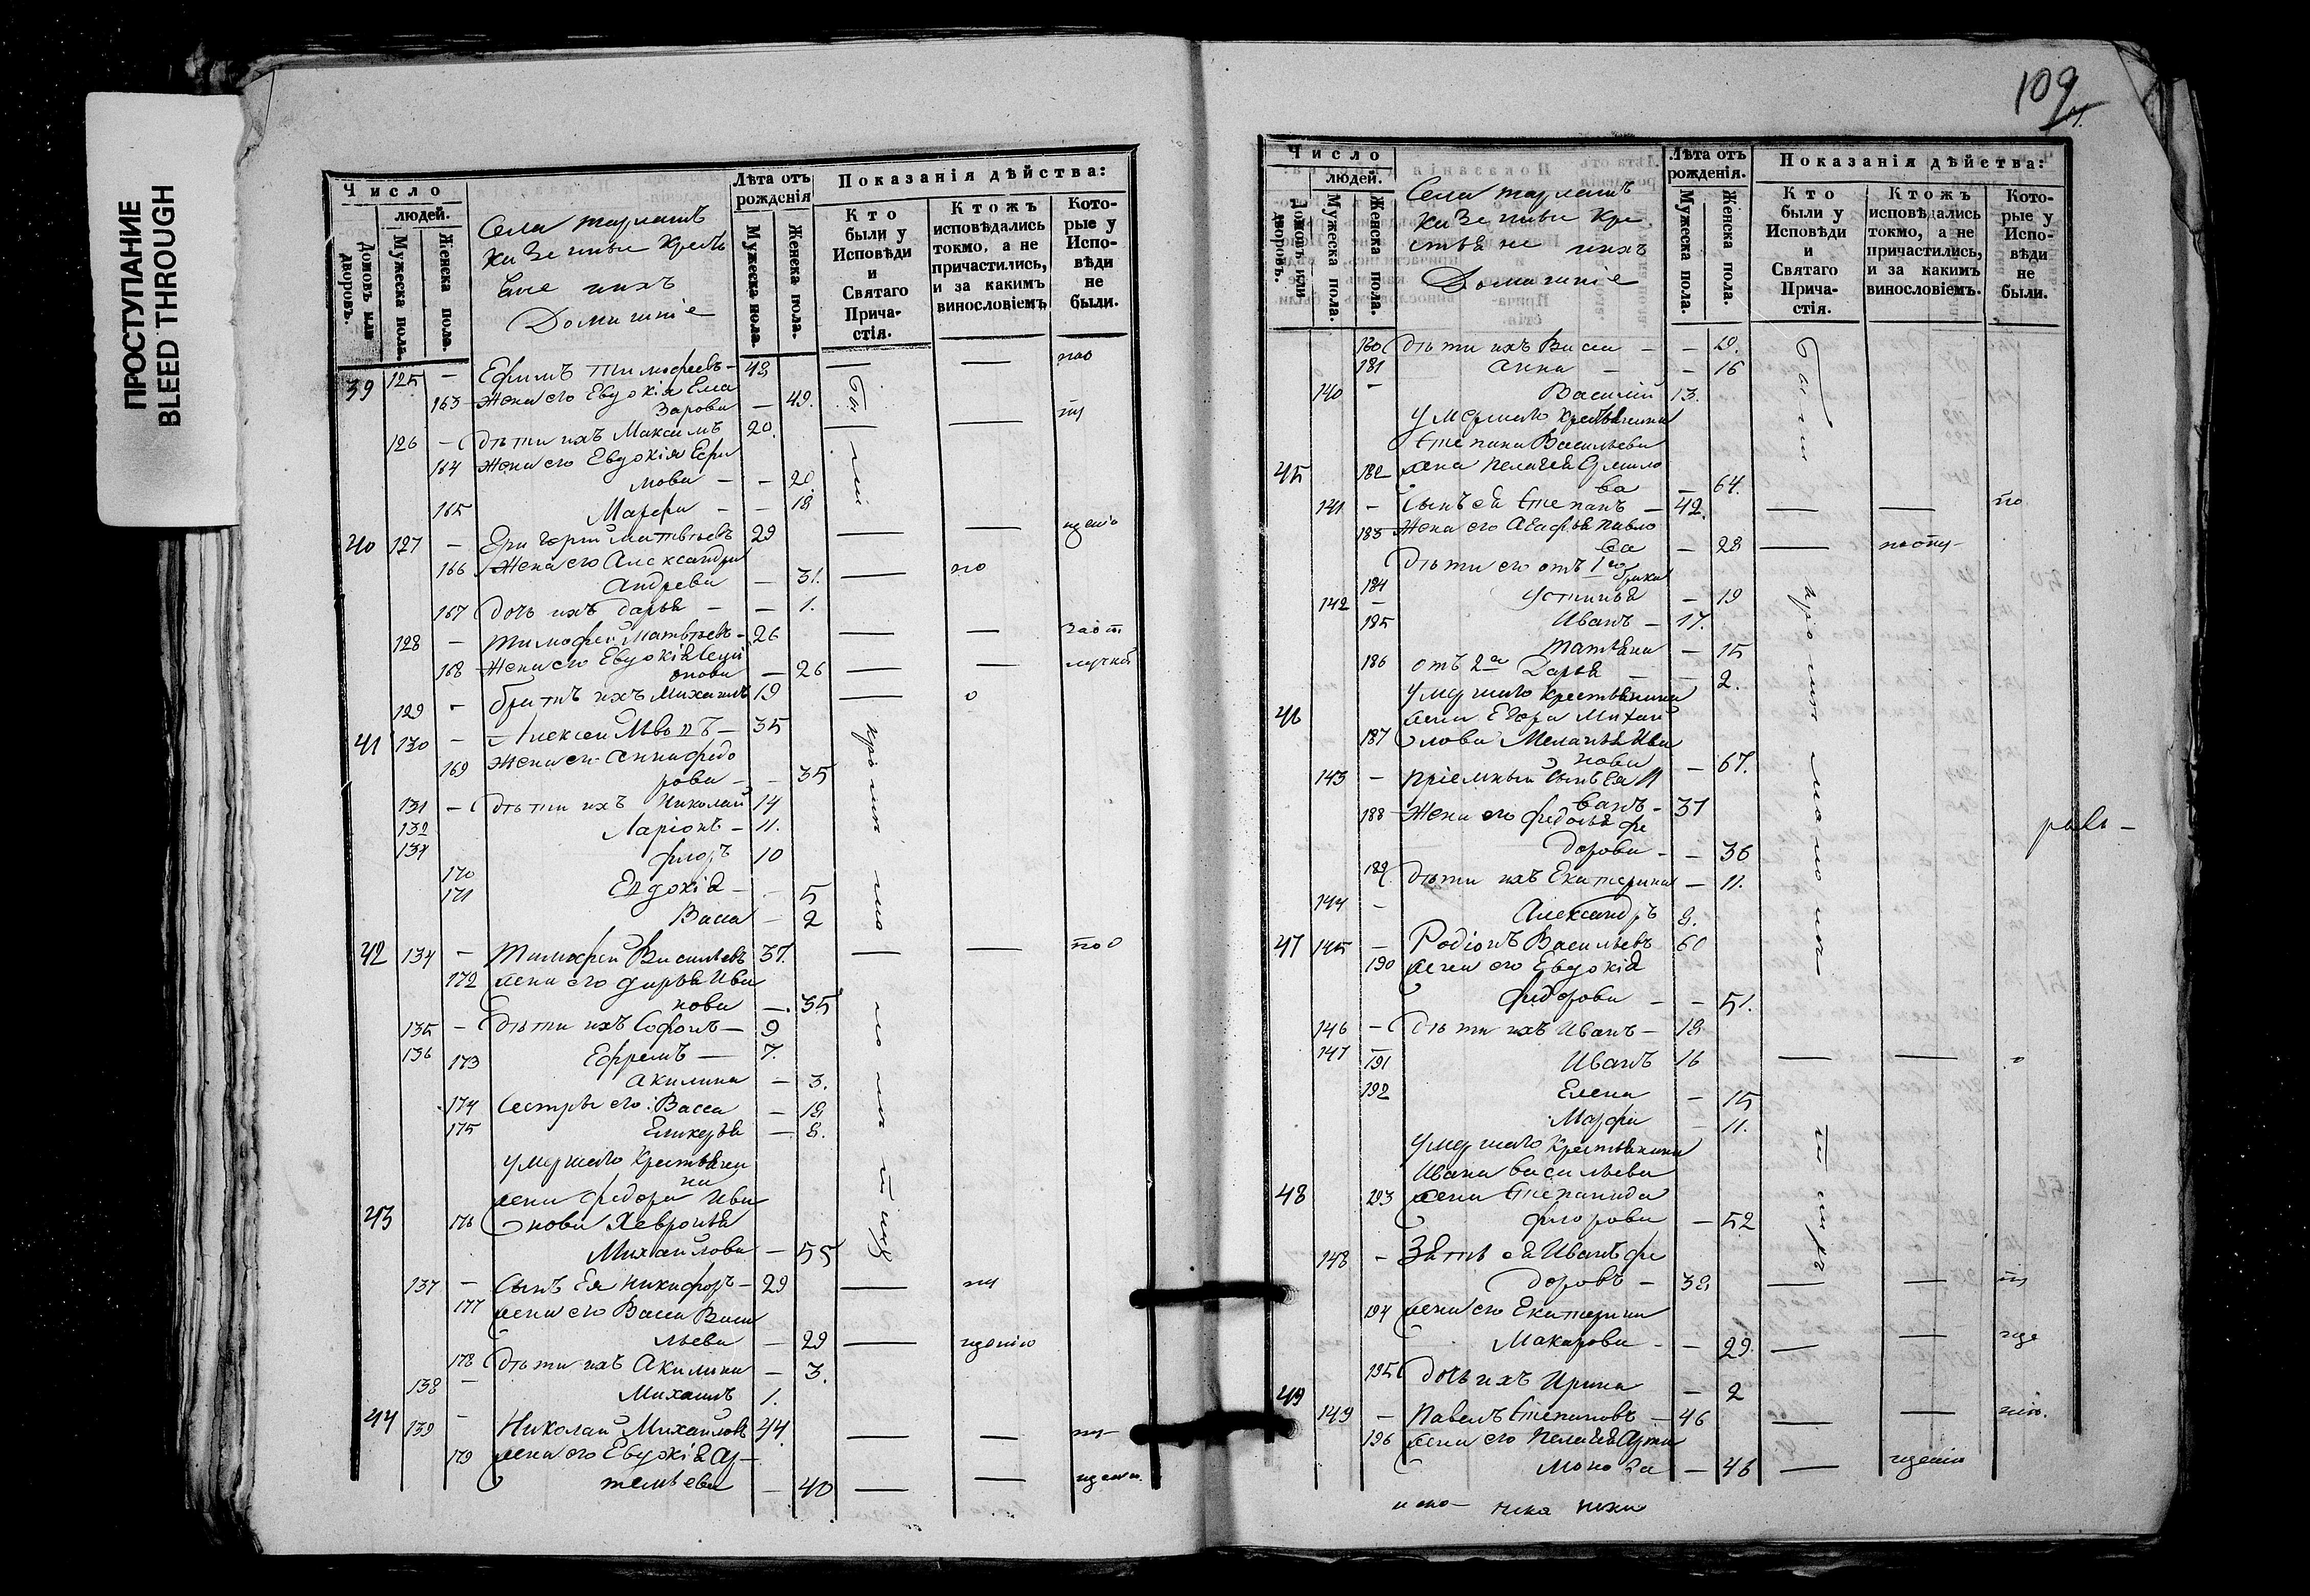 ПРОСТУПАНИЕ
BLEED THROUGH
109
Число
людей.
Домовъ или дворовъ.
Мужеска пола.
Женска пола.
Села
казенные крестьяне ихъ
Домашніе
Лѣта отъ рожденія
Мужеска пола.
Женска пола.
Показанія дѣйства:
Кто были у Исповѣди и Святаго Причастія.
Ктожъ исповѣдались токмо, а не причастились, и за какимъ винословіемъ
Которые у Исповѣди не были.
39 125 — Ефимъ Тимофеевъ — 48
163 Жена его Евдокія Елеа
зарова — 49.
126 — дѣти ихъ Максимъ 20
164 Жена его Евдокія Ефи
мова — — 20.
165 Марфа — — 18
40 127 — Григорій Матвѣевъ 29
166 Жена его Александра
Андреева — 31.
167 дочь ихъ Дарья — — 1.
128 — Тимофей Матвѣевъ — 26
168 Жена его Евдокія
— 26
129 — братъ ихъ Михаилъ 19
41 130 — Алексей Львовъ — 35
169 Жена его Анна Федо
рова — — 35
131 — дѣти ихъ Николай 14
132 Ларіонъ — 11.
134 Флоръ 10
170
171 Евдокія — — 5
Васса — 2
42 134 — Тимофей Васильевъ 37.
172 жена его Дарья Ива
нова — 35
135 — дѣти ихъ Софонъ — 9
136 173 Ефремъ — 7.
Акилина — 3.
174 Сестры его: Васса — 18
175 Гликерья — 8.
умершаго крестьяни
на
жена Федора Ива
43 176 нова Хевронья
Михайлова — 55
137 — Сынъ Ея Никифоръ — 29
177 жена его Васса Васи
льева — 29
178 дѣти ихъ Акилина — 3.
138 — Михаилъ 1.
44 139 — Николай Михайловъ 44.
179 жена его Евдокія Ар
темьева — 40
Были кромѣ малолѣтнихъ
Число
людей.
Домовъ или дворовъ.
Мужеска пола.
Женска пола.
Села
казенные кре
стьяне ихъ
Домашніе
Лѣта отъ рожденія.
Мужеска пола.
Женска пола.
Показанія дѣйства:
Кто были у Исповѣди и Святаго Причастія.
Ктожъ исповѣдались токмо, а не причастились, и за какимъ винословіемъ.
Которые у Исповѣди не были.
180 дѣти ихъ Васса — — 20.
181 Анна — — 16
140 — Василий 13.
умершаго крестьянина
Степана Васильева
45 182 жена Пелагея Ермило
ва — 64.
141 — Сынъ ея Степанъ — 42.
183 Жена его Агафья Павло
ва — 28
дѣти его отъ 1го брака
184
142 — Устинья — 19
185 Иванъ — 17.
Татьяна — 15
186 отъ 2го Дарья — — 2.
умершаго крестьянина
46 жена Егора Михай
187 лова Меланья Ива
нова — 67.
143 — пріемный сынъ ея И
ванъ — 37
188 Жена его Федосья Фе
дорова — — 36
189 дѣти ихъ Екатерина — 11.
144 — Александръ 9.
47 145 — Родіонъ Васильевъ 60
190 жена его Евдокія
Федорова — — 51.
146 — дѣти ихъ Иванъ — 18
147 — 191 Иванъ 16
192 Елена — 15
Марфа — 11.
умершаго крестьянина
Ивана Васильева
48 193 жена Степанида
Флорова — 52
148 — Зять ея Иванъ Фе
доровъ — 38
194 жена его Екатерина
Макарова — — 29.
195 дочь ихъ Ирина — 2
49 149 — Павелъ Степановъ — 46
196 жена его Пелагея Арта
монова — 46